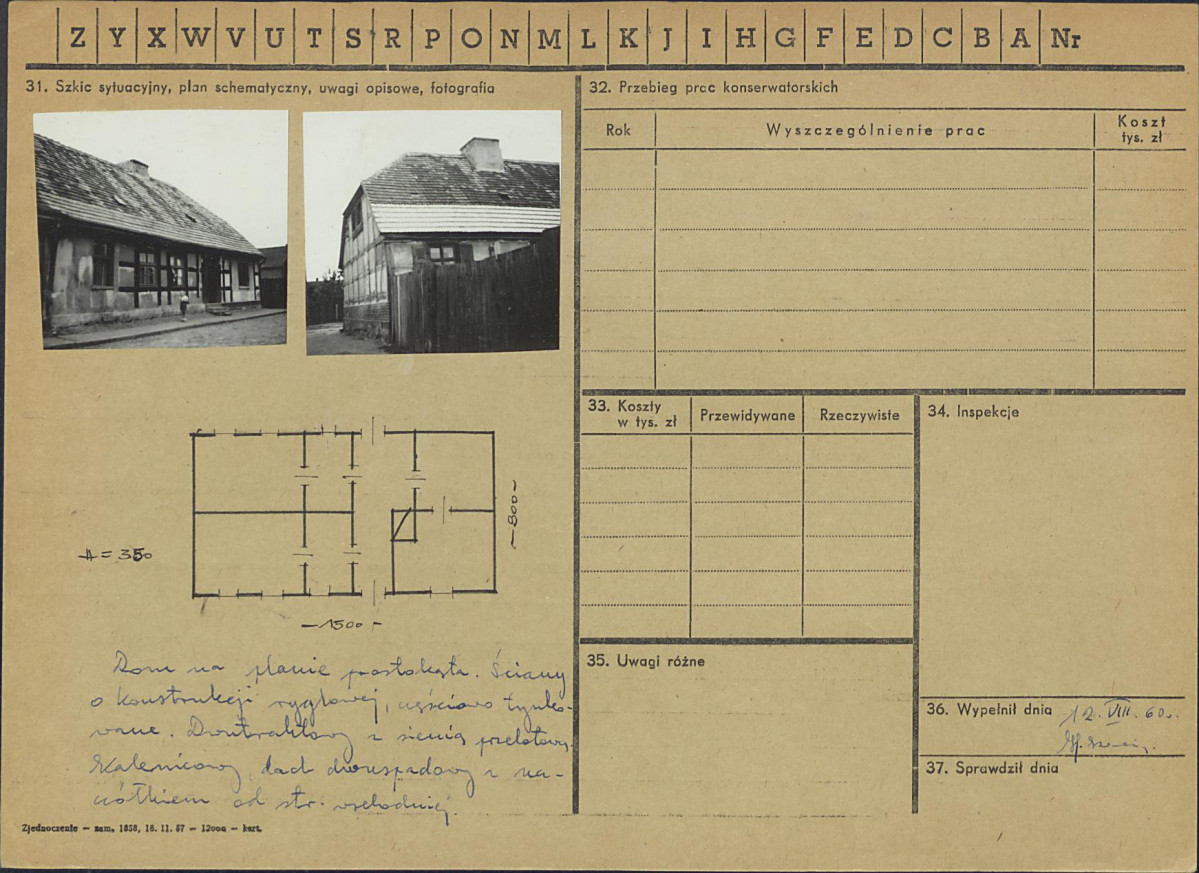 Z Y X W V U T S R P O N M L K J I H G F E D C B A Nr
31. Szkic sytuacyjny, plan schematyczny, uwagi opisowe, fotografia
H = 350
800
1500
Dom na planie prostokąta. Ściany
o konstrukcji ryglowej, częściowo tynko-
wane. Dwutraktowy z sienią przelotową.
Kalenicowy, dach dwuspadowy z na-
ciółkiem od str. wschodniej.
Zjednoczenie — zam. 1858, 18. 11. 57 — 12000 — kart.
32. Przebieg prac konserwatorskich
Rok Wyszczególnienie prac Koszt tys. zł
33. Koszty w tys. zł Przewidywane Rzeczywiste
34. Inspekcje
35. Uwagi różne
36. Wypełnił dnia 12. VIII. 60 r.
37. Sprawdził dnia